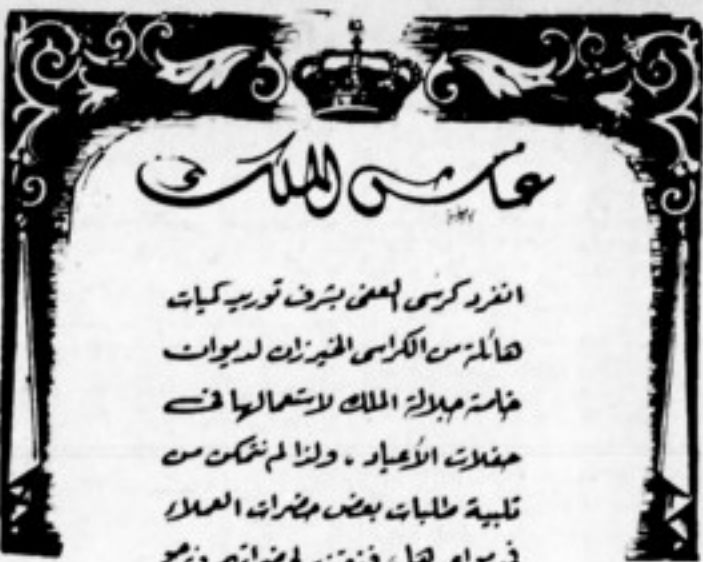 عاش الملك
انفرد كرسى العفى بشرف توريد كميات
هائلة من الكراسى الخيزران لديوان
خاصة جلالة الملك لاستعمالها فى
حفلات الأعياد . ولذا لم نتمكن من
تلبية طلبات بعض حضرات العملاء
فى مواعيدها ، فنعتذر لحضراتهم ونرجو